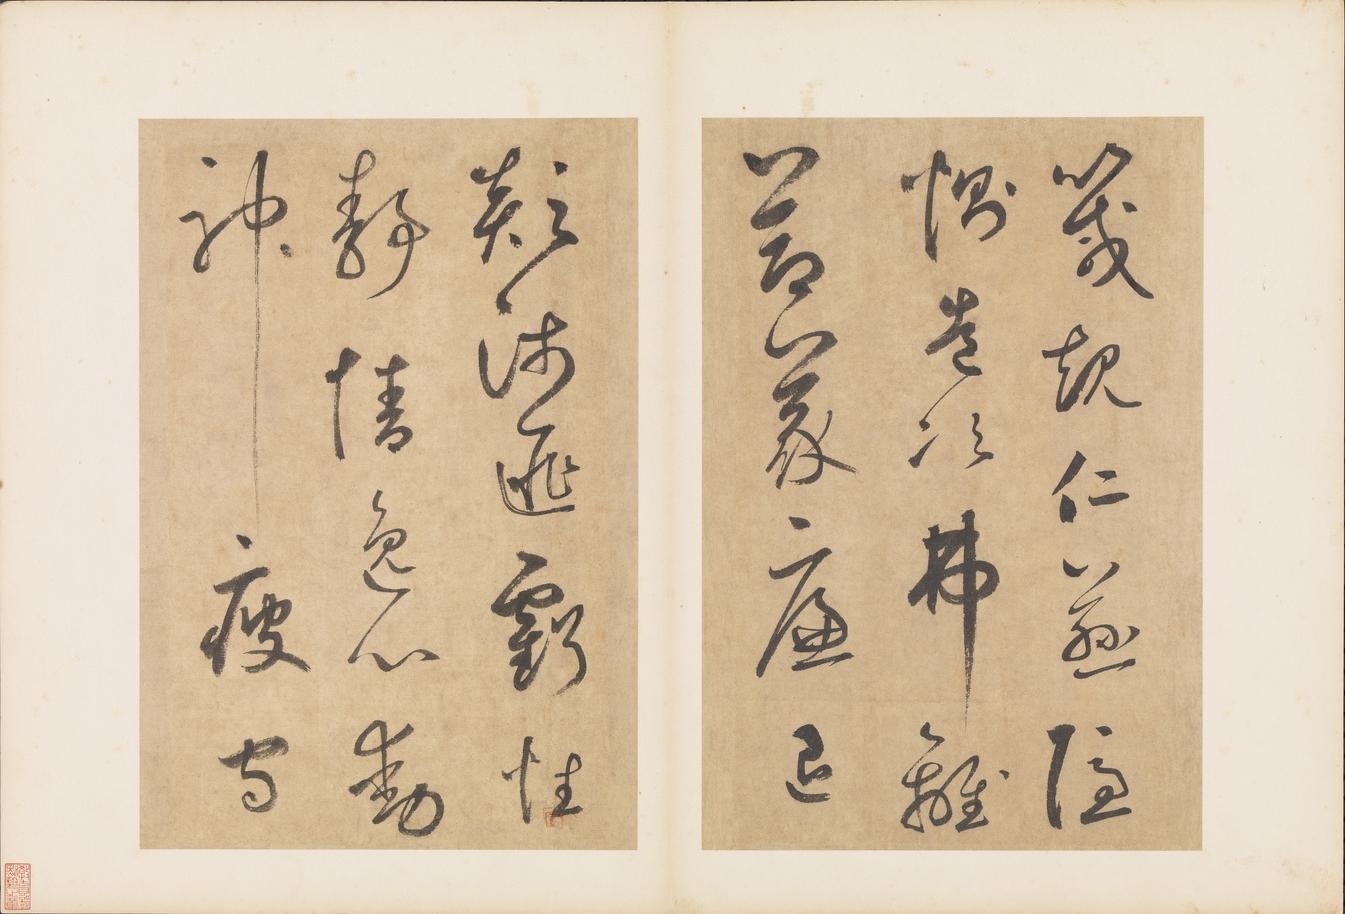 箴規仁慈隱
惻造次弗離
節義廉退
顛沛匪虧性
靜情逸心動
神疲守